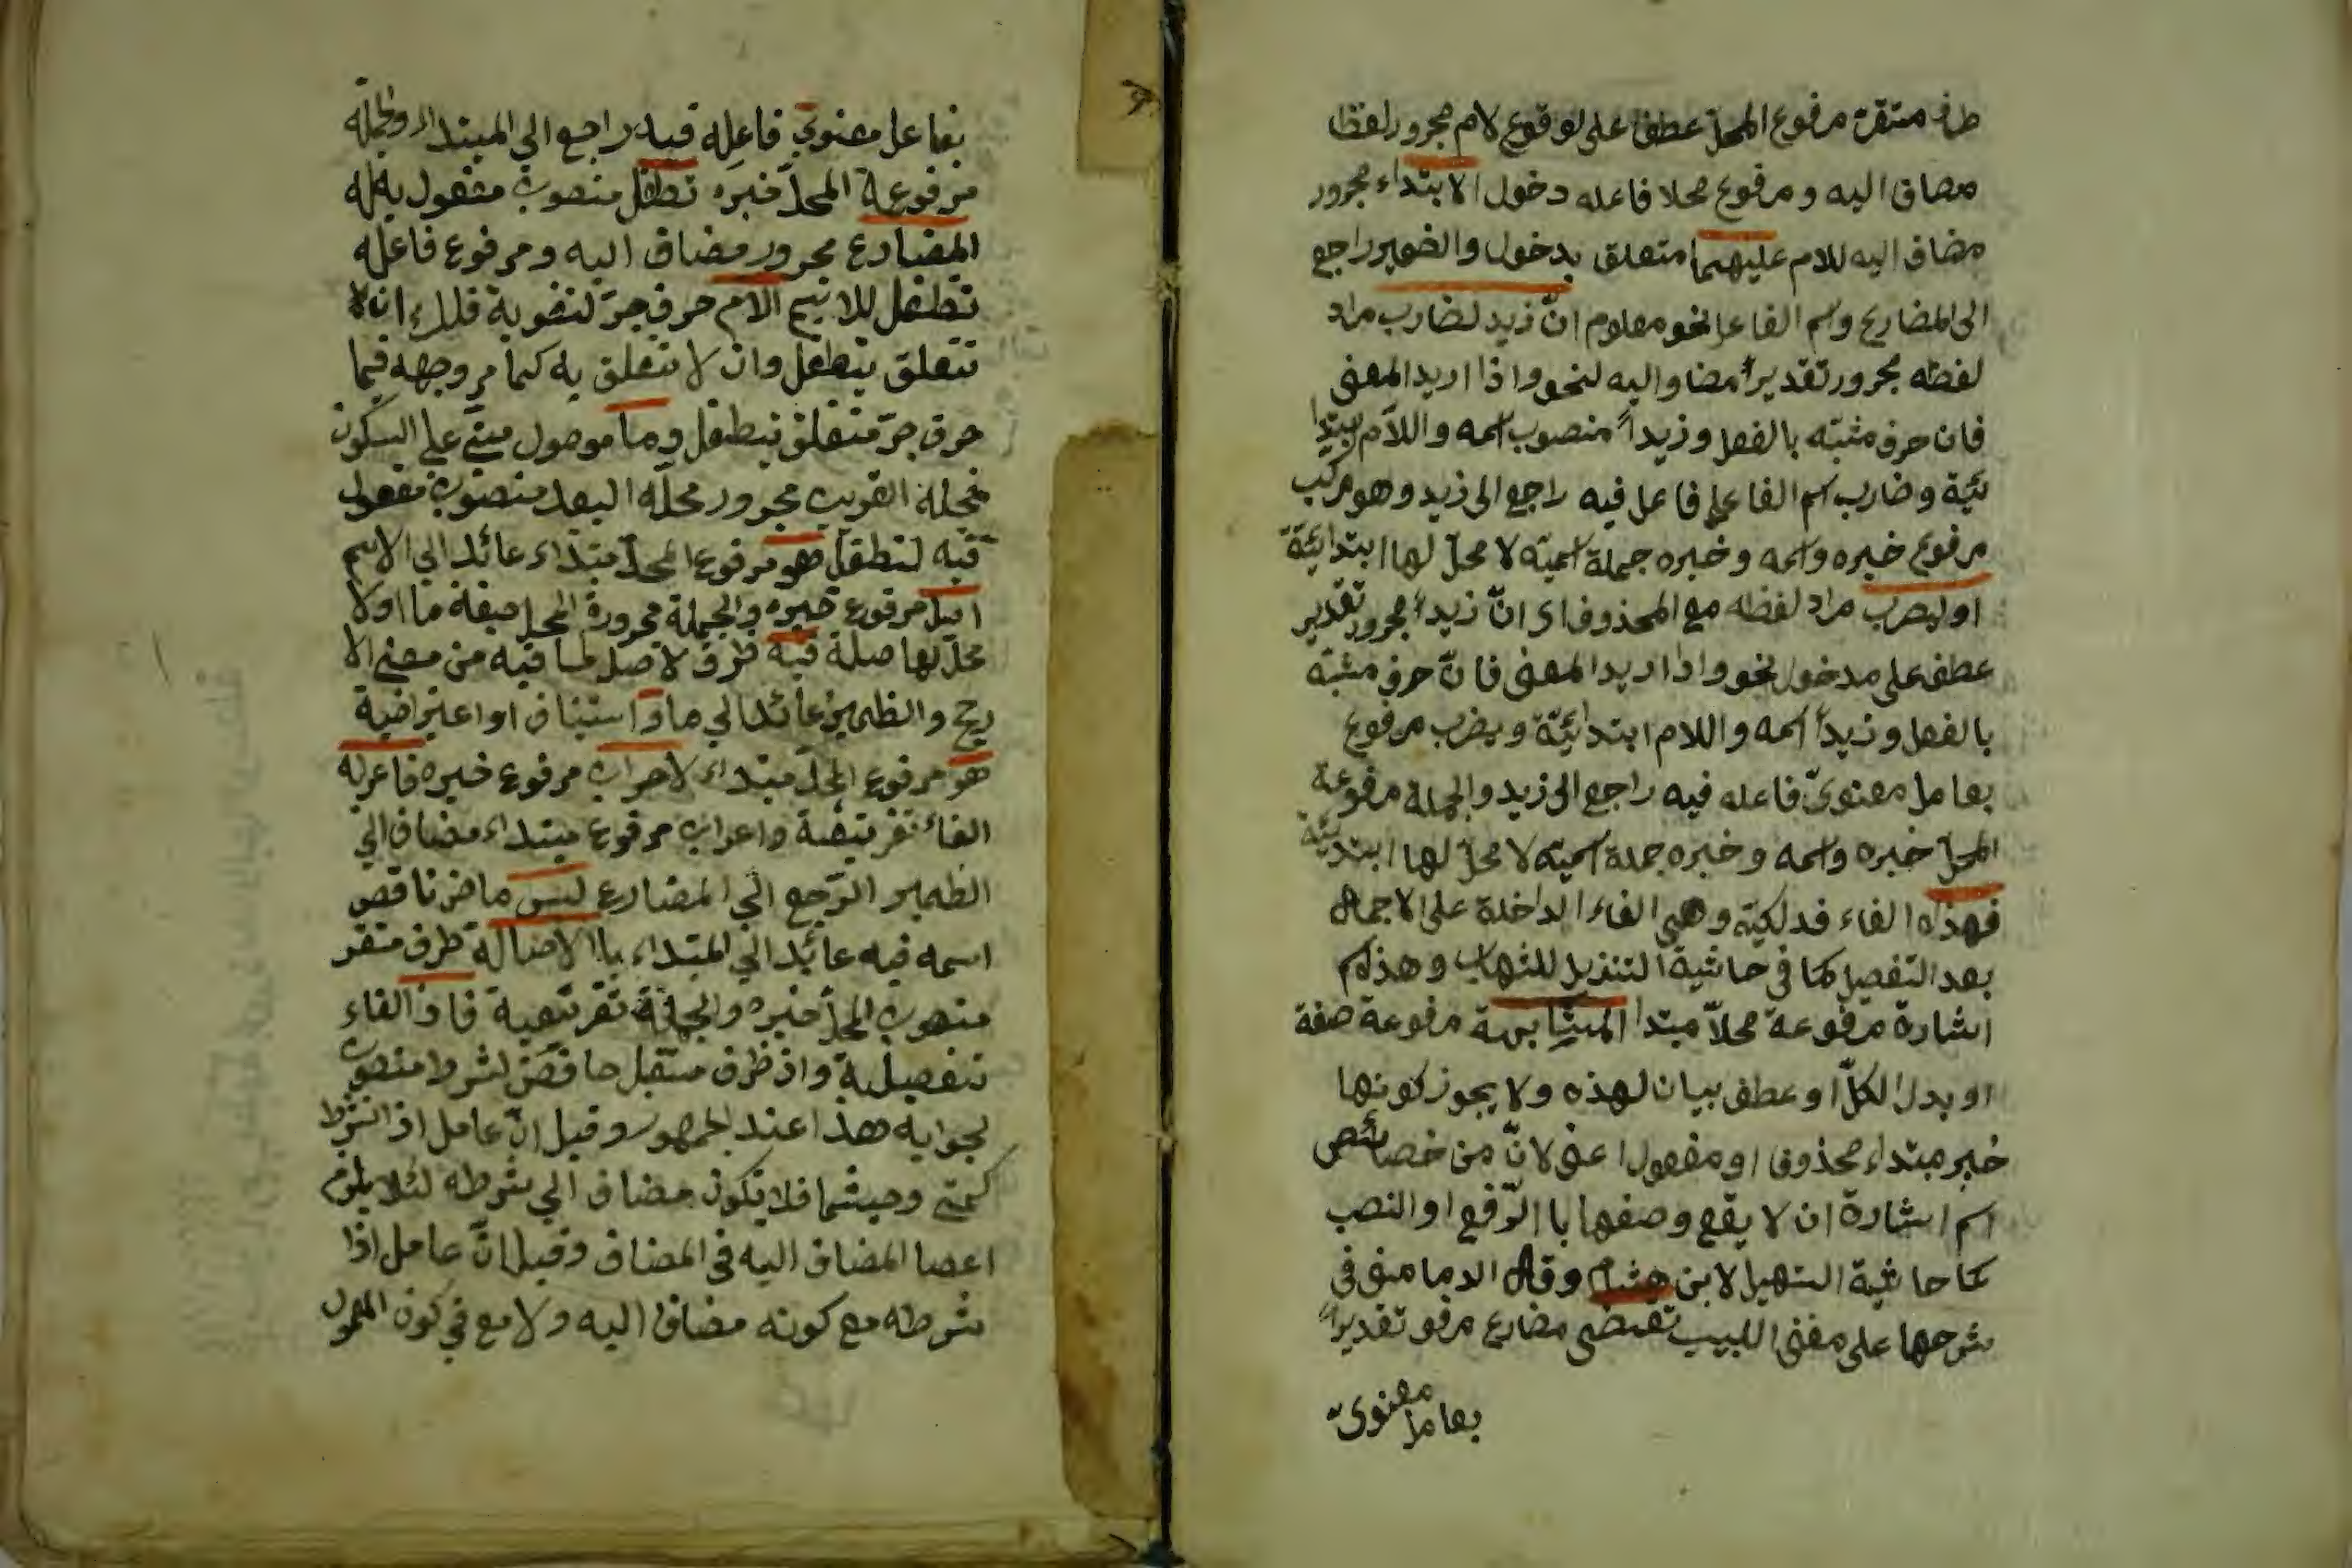 ظرف متقرة مرفوع المحلّ عطف على لوقوع لام مجرور لفظا
مضاف اليه ومرفوع محلا فاعله دخول الابتداء مجرور
مضاف اليه للام عليهما متعلق بدخول والضمير راجع
الى المضارع واسم الفاعل نحو معلوم انّ زيد لضارب مراد
لفظه مجرور تقديراً مضاف اليه لنحو واذا اريد المعنى
فان حرف مشبّه بالفعل وزيداً منصوب اسمه واللاّم ابتدا
ئيّة وضارب اسم الفاعل فاعل فيه راجع الى زيد وهو مركب
مرفوع خبره واسمه وخبره جملة اسميّة لا محلّ لها ابتدائيّة
او ليضرب مراد لفظه مع المحذوف اى انّ زيداً مجرور تقدير
عطف على مدخول نحو واذا اريد المعنى فانّ حرف مشبّه
بالفعل وزيداً اسمه واللام ابتدائيّة ويضرب مرفوع
بعامل معنوىّ فاعله فيه راجع الى زيد والجملة مرفوعة
المحلّ خبره واسمه وخبره جملة اسميّة لا محلّ لها ابتدئيّة
فهذه الفاء فدلكيّة وهى الفاء الداخلة على الاجمال
بعد التفصيل كما فى حاشية التنزيل للشهاب وهذه اسم
اشارة مرفوعة محلاّ مبتدا المشابهة مرفوعة صفة
او بدل الكلّ او عطف بيان لهذه ولا يجوز كونها
خبر مبتداء محذوف او مفعول اعنى لانّ من خصائص
اسم اشارة ان لا يقع وصفها با الرّفع او النصب
كما حاشية التسهيل لابن هشام وقال الدمامينى فى
شرحها على مغنى اللبيب تقتضى مضارع مرفو تقديراً
بعامل معنوىّ
بعامل معنوي فاعله فيه راجع الي المبتداء والجملة
مرفوعة المحلّ خبره تطفل منصوب مفعول به له
المضارع مجرور مضاف اليه ومرفوع فاعله
تطفل للاسم الام حرف جرّ لتقوية فلك ان لا
تتعلق بتطفل وان لا تتعلق به كما مر وجهه فيما
حرف جرّ متعلق بتطفل وما موصول مبني علي السكون
فمحله القريب مجرور محلّه البعد منصوب مفعول
فيه لتطفل هو مرفوع المحلّ مبتداء عائد الي الاسم
اصل مرفوع خبره والجملة مجرورة المحل صفة ما او لا
محلّ لها صلة فيه ظرف لاصل لما فيه من معني الا
ريح والظمير عائد الي ما و استيناف او اعتراضية
هو مرفوع المحلّ مبتداء لاحراب مرفوع خبره فاعرابه
الفاء تفريعية واعراب مرفوع مبتداء مضاف الي
الظمير الرّجع الي المضارع ليس ماض ناقص
اسمه فيه عائد الي المبتداء با الاصالة ظرف متقر
منصوب المحلّ خبره والجملة تفريعية فاذ الفاء
تفصيلية واذ ظرف مستقبل خافض لشرط منصوب
بجوابه هذا عند الجمهور وقيل انّ عامل اذ الشرط
كمتي وحيثما فلا تكون مضاف الي شرطه لئلا يلزم
اعصا المضاف اليه في المضاف وقيل انّ عامل اذا
شرطه مع كونه مضاف اليه ولا مع في كون المعمول